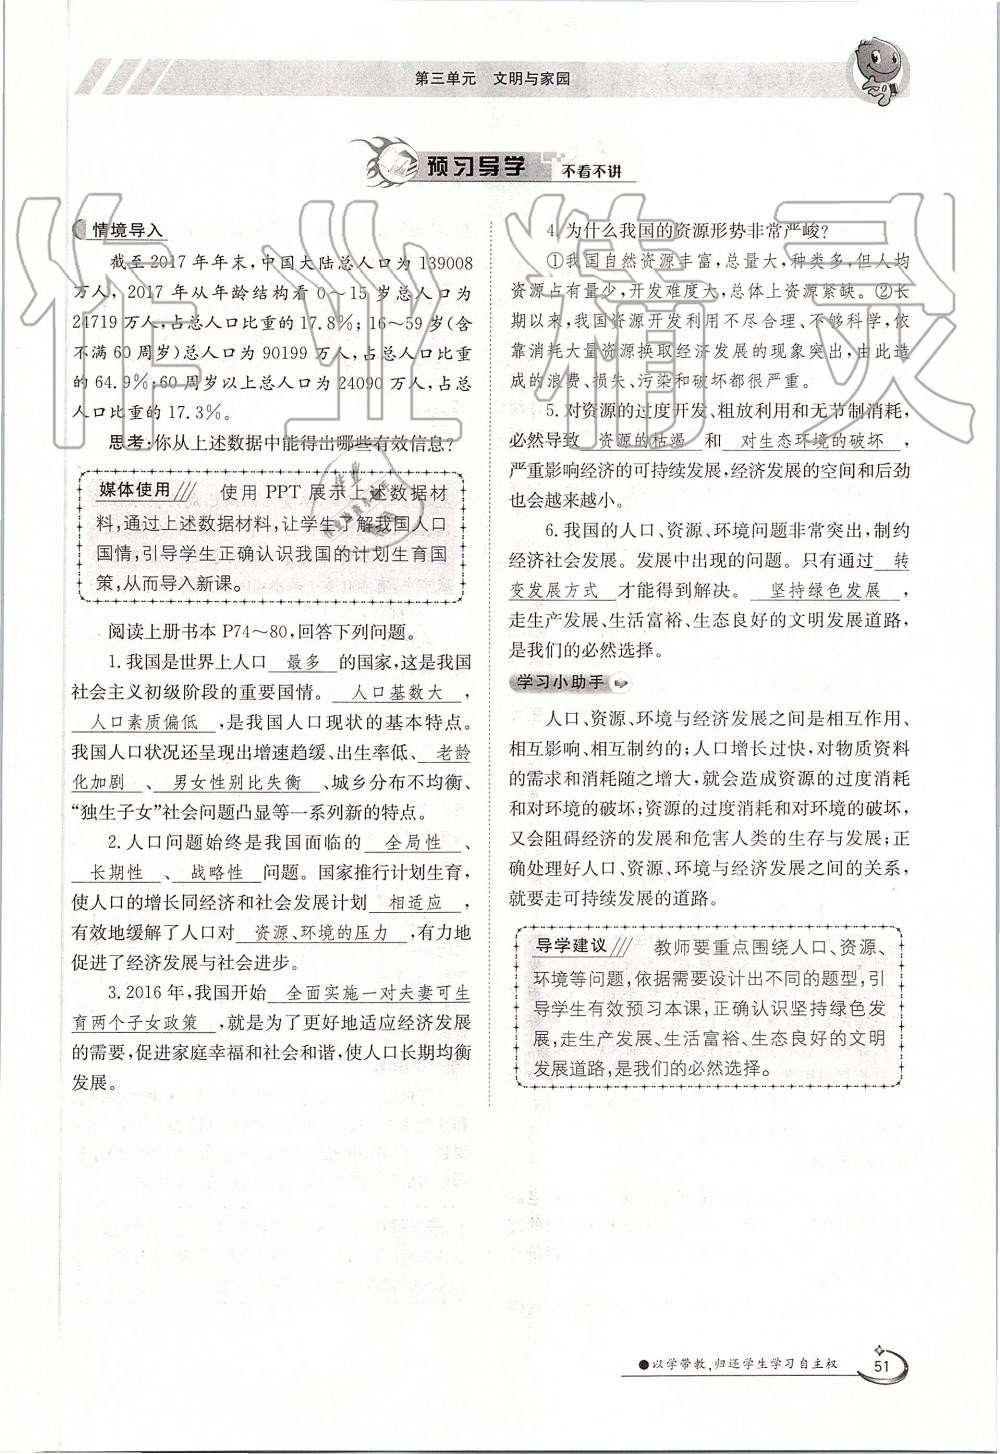 第三单元 文明与家园
预习导学 不看不讲
情境导入
截至2017年年末,中国大陆总人口为139008
万人,2017年从年龄结构看0～15岁总人口为
24719万人,占总人口比重的17.8%;16～59岁(含
不满60周岁)总人口为90199万人,占总人口比重
的64.9%;60周岁以上总人口为24090万人,占总
人口比重的17.3%。
思考:你从上述数据中能得出哪些有效信息?
媒体使用 使用PPT展示上述数据材
料,通过上述数据材料,让学生了解我国人口
国情,引导学生正确认识我国的计划生育国
策,从而导入新课。
阅读上册书本P74～80,回答下列问题。
1.我国是世界上人口 最多 的国家,这是我国
社会主义初级阶段的重要国情。 人口基数大 、
人口素质偏低 ,是我国人口现状的基本特点。
我国人口状况还呈现出增速趋缓、出生率低、 老龄
化加剧 、 男女性别比失衡 、城乡分布不均衡、
“独生子女”社会问题凸显等一系列新的特点。
2.人口问题始终是我国面临的 全局性 、
长期性 、 战略性 问题。国家推行计划生育,
使人口的增长同经济和社会发展计划 相适应 ,
有效地缓解了人口对 资源、环境的压力 ,有力地
促进了经济发展与社会进步。
3.2016年,我国开始 全面实施一对夫妻可生
育两个子女政策 ,就是为了更好地适应经济发展
的需要,促进家庭幸福和社会和谐,使人口长期均衡
发展。
4.为什么我国的资源形势非常严峻?
①我国自然资源丰富,总量大,种类多,但人均
资源占有量少,开发难度大,总体上资源紧缺。②长
期以来,我国资源开发利用不尽合理、不够科学,依
靠消耗大量资源换取经济发展的现象突出,由此造
成的浪费、损失、污染和破坏都很严重。
5.对资源的过度开发、粗放利用和无节制消耗,
必然导致 资源的枯竭 和 对生态环境的破坏 ,
严重影响经济的可持续发展,经济发展的空间和后劲
也会越来越小。
6.我国的人口、资源、环境问题非常突出,制约
经济社会发展。发展中出现的问题。只有通过 转
变发展方式 才能得到解决。 坚持绿色发展 ,
走生产发展、生活富裕、生态良好的文明发展道路,
是我们的必然选择。
学习小助手
人口、资源、环境与经济发展之间是相互作用、
相互影响、相互制约的;人口增长过快,对物质资料
的需求和消耗随之增大,就会造成资源的过度消耗
和对环境的破坏;资源的过度消耗和对环境的破坏,
又会阻碍经济的发展和危害人类的生存与发展;正
确处理好人口、资源、环境与经济发展之间的关系,
就要走可持续发展的道路。
导学建议 教师要重点围绕人口、资源、
环境等问题,依据需要设计出不同的题型,引
导学生有效预习本课,正确认识坚持绿色发
展,走生产发展、生活富裕、生态良好的文明
发展道路,是我们的必然选择。
●以学带教,归还学生学习自主权 51
作业精灵